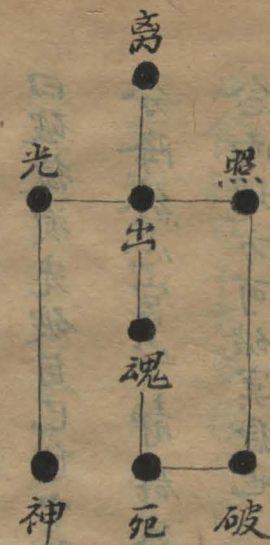 离
光
照
出
魂
神
死
破